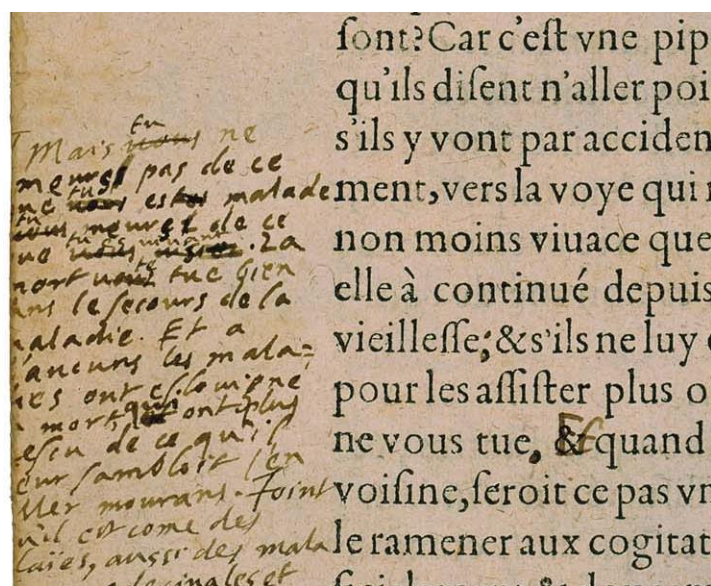 Mais tu ne
meurs pas de ce
tu es malade
tu meurs de ce
que tu es vivant. La
mort te tue bien
le secours de la
maladie. Et a
d'aucuns les mala=
ont esloigné
mort qui ont plus
de ce qu'il
leur sambloit s'en
mourans. Joint
qu'il est come des
plaïes, aussi des mala
et
font? Car c'eſt vne pip
qu'ils diſent n'aller poi
s'ils y vont par acciden
ment, vers la voye qui
non moins viuace que
elle à continué depuis
vieilleſſe; & s'ils ne luy
pour les aſſiſter plus o
ne vous tue. Et quand
voiſine, ſeroit ce pas vn
le ramener aux cogitat